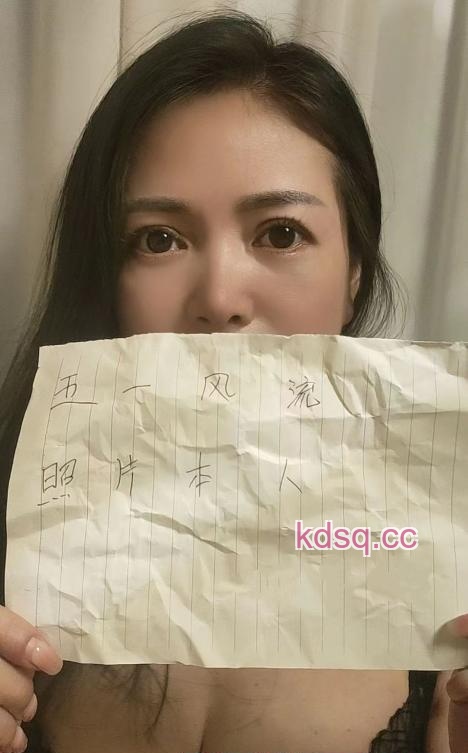 五一风流
照片本人
kdsq.cc